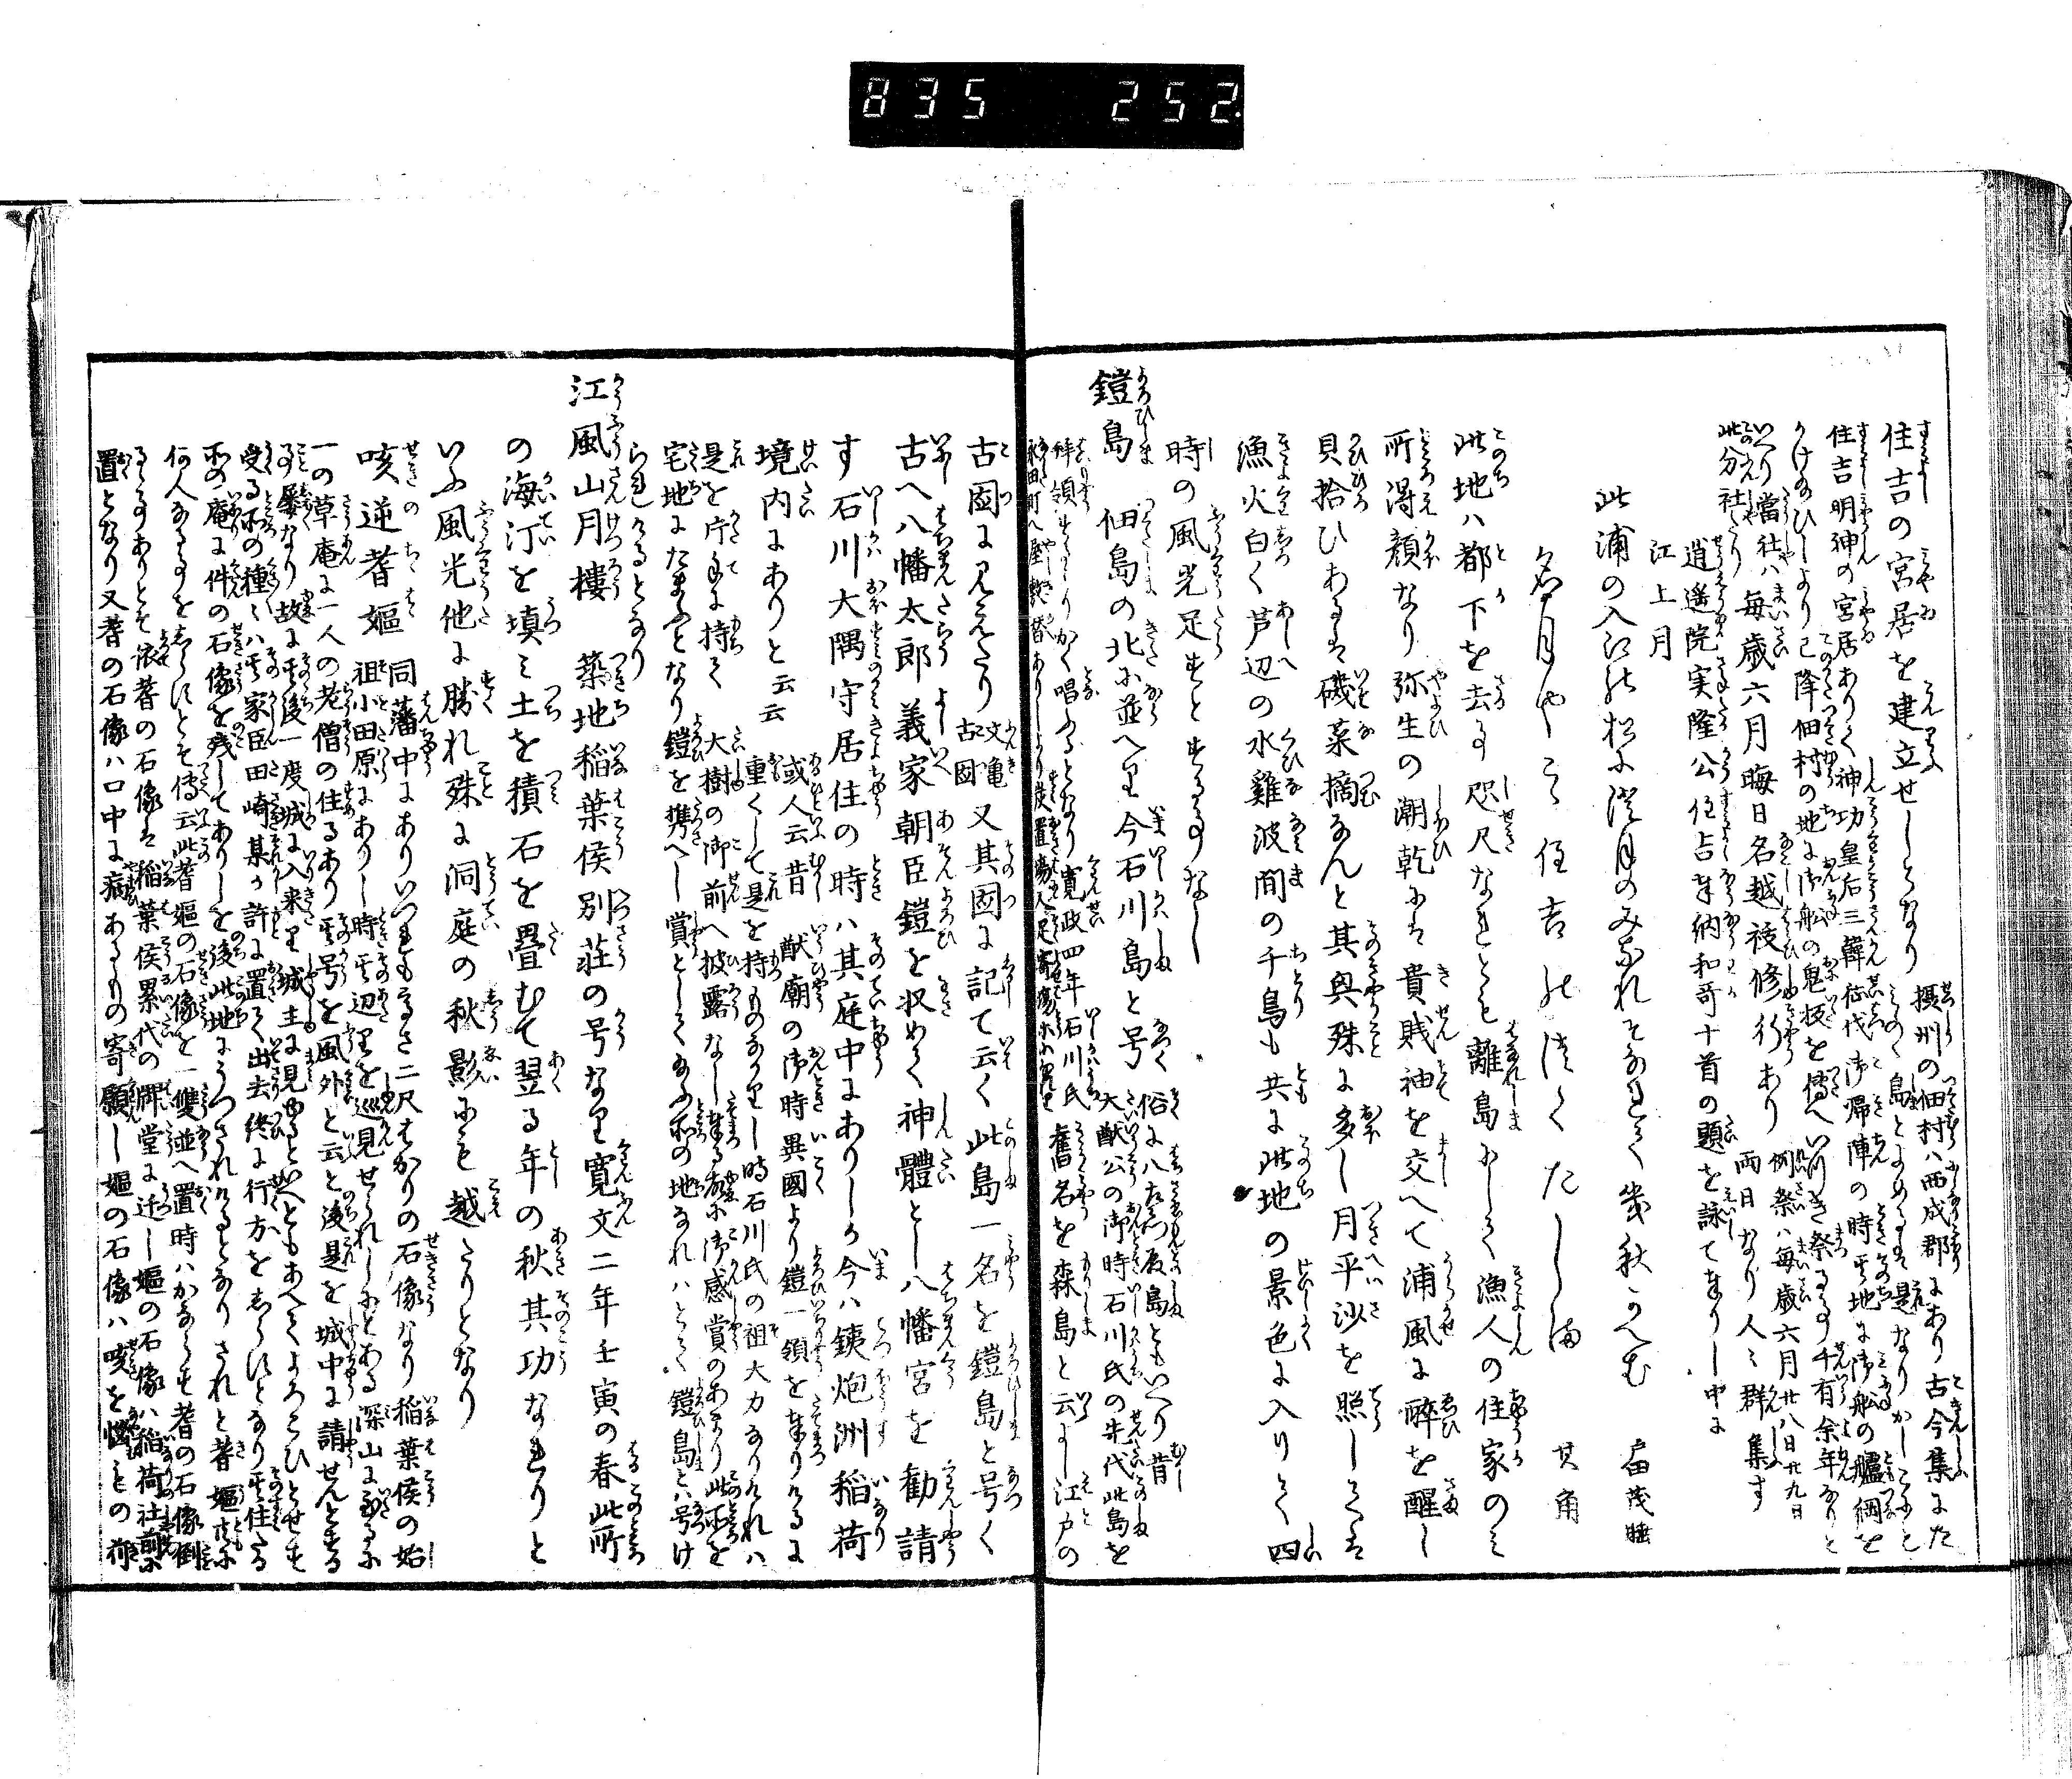 835 252.
住吉の宮居を建立せしとなり 摂州の佃村ハ西成郡にあり古今集にた
みのゝ島とよめるも是なりかしこにも
住吉明神の宮居ありて神功皇后三韓征代御帰陣の時其地に御船の艫綱を
かけ給ひしより已降佃村の地に御船の鬼板を傳へいつき祭る事千有余年なりと
いへり當社ハ毎歳六月晦日名越祓修行あり 例祭ハ毎歳六月廿八日廿九日
此分社たり 両日なり人々群集す
逍遥院実隆公住吉奉納和哥十首の題を詠て奉りし中に
江上月
此浦の入江の松に澄月のみなれそなれて幾秋かへむ 戸田茂睡
名月やこゝ住吉のつくたしま 其角
此地ハ都下を去事咫尺なれとも離島にして漁人の住家のミ
所得顔なり弥生の潮乾にハ貴賎袖を交へて浦風に酔を醒し
貝拾ひあるハ磯菜摘なんと其興殊に多し月平沙を照しては
漁火白く芦辺の水雞波間の千鳥も共に此地の景色に入りて四
時の風光足すとする事なし
鎧島 佃島の北に並へり今石川島と号 俗に八左衛門島ともいへり昔
大猷公の御時石川氏の先代此島を
拝領せしよりかく唱ふるとなり寛政四年石川氏 舊名を森島と云よし江戸の
永田町へ屋敷替ありしより炭置場人足寄場等になれり
古図に見えたり 文亀古図 又其図に記て云く此島一名を鎧島と号く
古へ八幡太郎義家朝臣鎧を収めて神體とし八幡宮を勧請
す石川大隅守居住の時ハ其庭中にありしか今ハ銕炮洲稲荷
境内にありと云云 或人云昔 猷廟の御時異國より鎧一領を奉りけるに
重くして是を持ものなかりし時石川氏の祖大力なりけれハ
是を片手に持て 大樹の御前へ披露なし奉る故に御感賞のあまり此所を
宅地にたまふとなり鎧を携へし賞として給ふ所の地なれハとて鎧島とハ号け
られけるとなり
江風山月樓 築地稲葉侯別荘の号なり寛文二年壬寅の春此所
の海汀を填ミ土を積石を畳むて翌る年の秋其功なれりと
いふ風光他に勝れ殊に洞庭の秋影にも越たりとなり
咳逆耆嫗 同藩中にありいつれも高さ二尺はかりの石像なり稲葉侯の始
祖小田原にありし時其辺りを巡見せられしにとある深山に至るに
一の草庵に一人の老僧の住るあり其号を風外と云と後是を城中に請せんとする
事屡なり故に其後一度城に入来り城主に見ゆるといへともあへてよろこひとせす
受る所の種々ハ其家臣田崎某か許に置て出去終に行方をしらすとなり其住たる
所の庵に件の石像を残してありしを後此地にうつされけるとなりされと耆嫗共に
何人なる事をしらすとそ傳云此耆嫗の石像を一雙並へ置時ハかならす耆の石像倒
るゝ事ありとそ依耆の石像ハ稲葉侯累代の牌堂に迁し嫗の石像ハ稲荷社前に
置となり又耆の石像ハ口中に病あるもの寄願し嫗の石像ハ咳を憫ものの祈